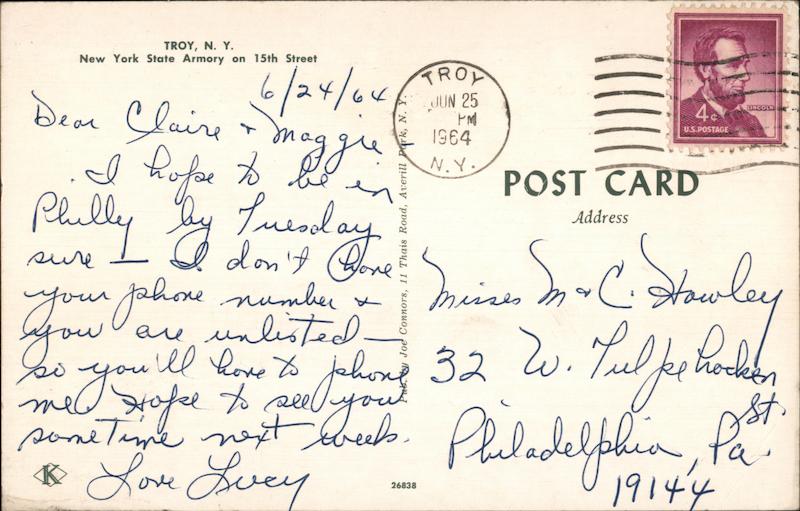 TROY, N. Y.
New York State Armory on 15th Street
6/24/64
Dear Claire & Maggie -
I hope to be in
Philly by Tuesday
sure — I don't have
your phone number &
you are unlisted —
so you'll have to phone
me. Hope to see you
sometime next week.
Love Lucy
K
Pub. by Joe Connors, 11 Thais Road, Averill Park, N. Y.
26838
TROY
JUN 25
PM
1964
N.Y.
LINCOLN
4¢
U.S. POSTAGE
POST CARD
Address
Misses M & C. Hawley
32 W. Tulpehocken
St.
Philadelphia, Pa
19144